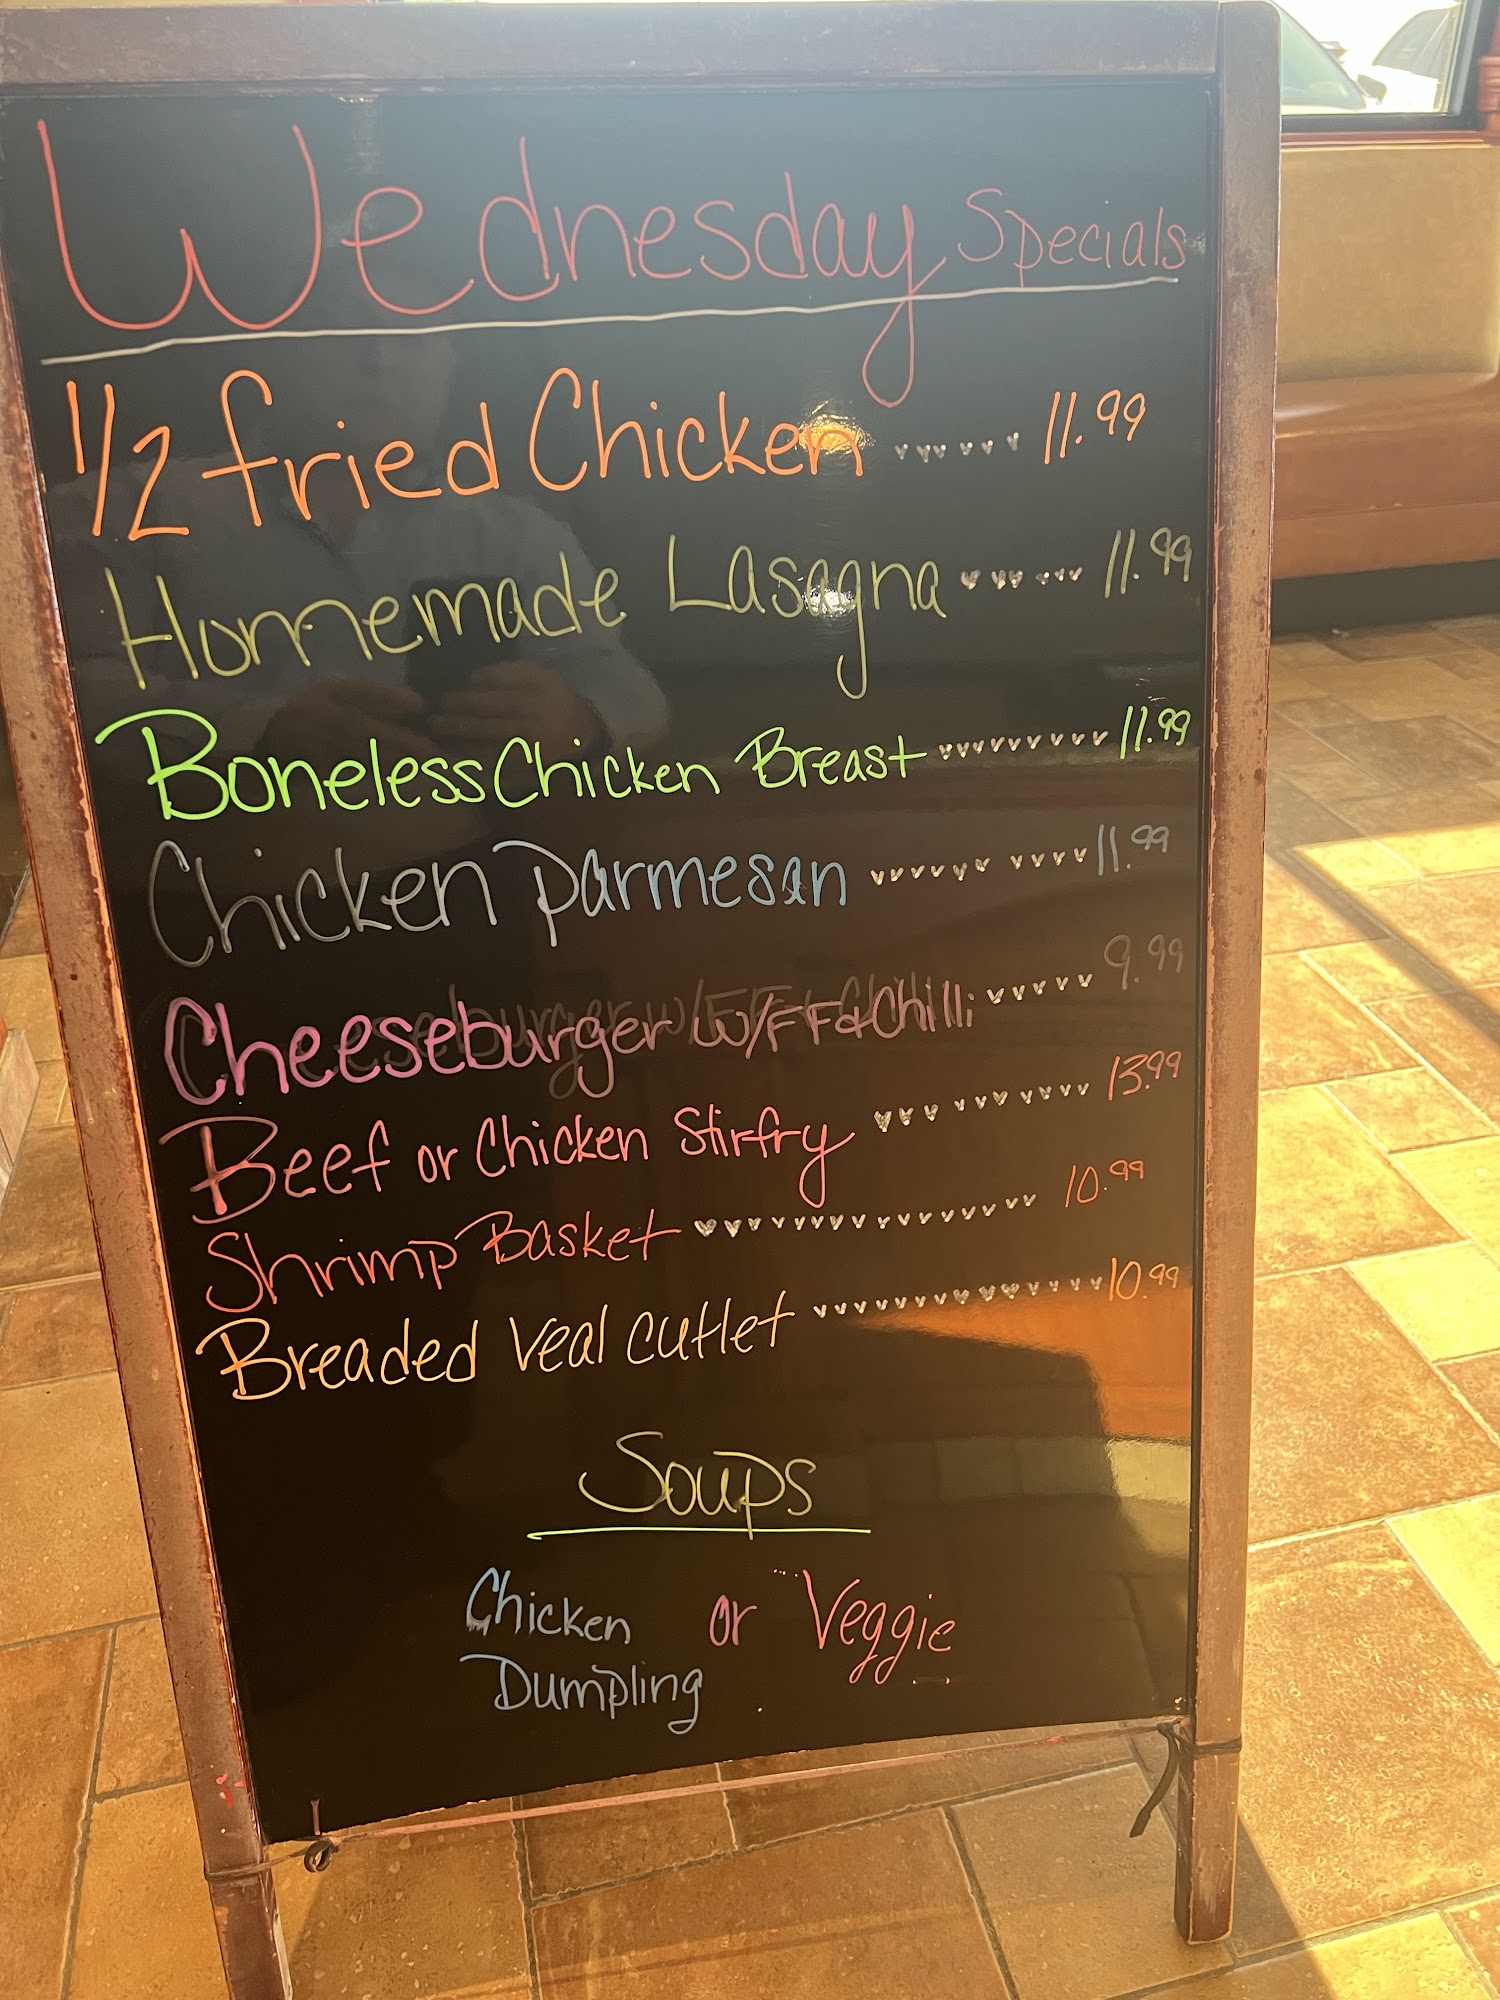 Wednesday Specials
1/2 fried Chicken ...... 11.99
Homemade Lasagna ...... 11.99
Boneless Chicken Breast ......... 11.99
Chicken Parmesan .......... 11.99
Cheeseburger w/FF & Chilli ..... 9.99
Beef or Chicken Stirfry .......... 13.99
Shrimp Basket ............... 10.99
Breaded Veal cutlet ............... 10.99
Soups
Chicken or Veggie
Dumpling